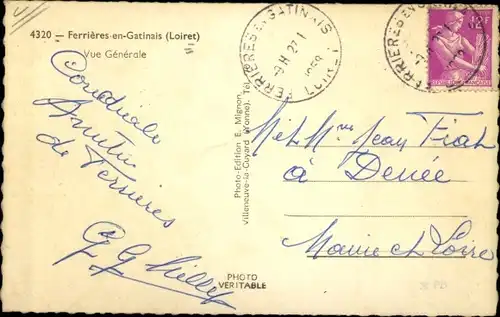 4320 — Ferrières-en-Gatinais (Loiret)
Vue Générale
Cordiale
Amitié
de Ferrières
FERRIERES EN GATINAIS
LOIRET
9 H 27-1
1959
12F
Photo-Edition E. Mignon
Villeneuve-la-Guyard (Yonne). Tél.
M et Mme Jean
à Denée
Maine et Loire
PHOTO
VERITABLE